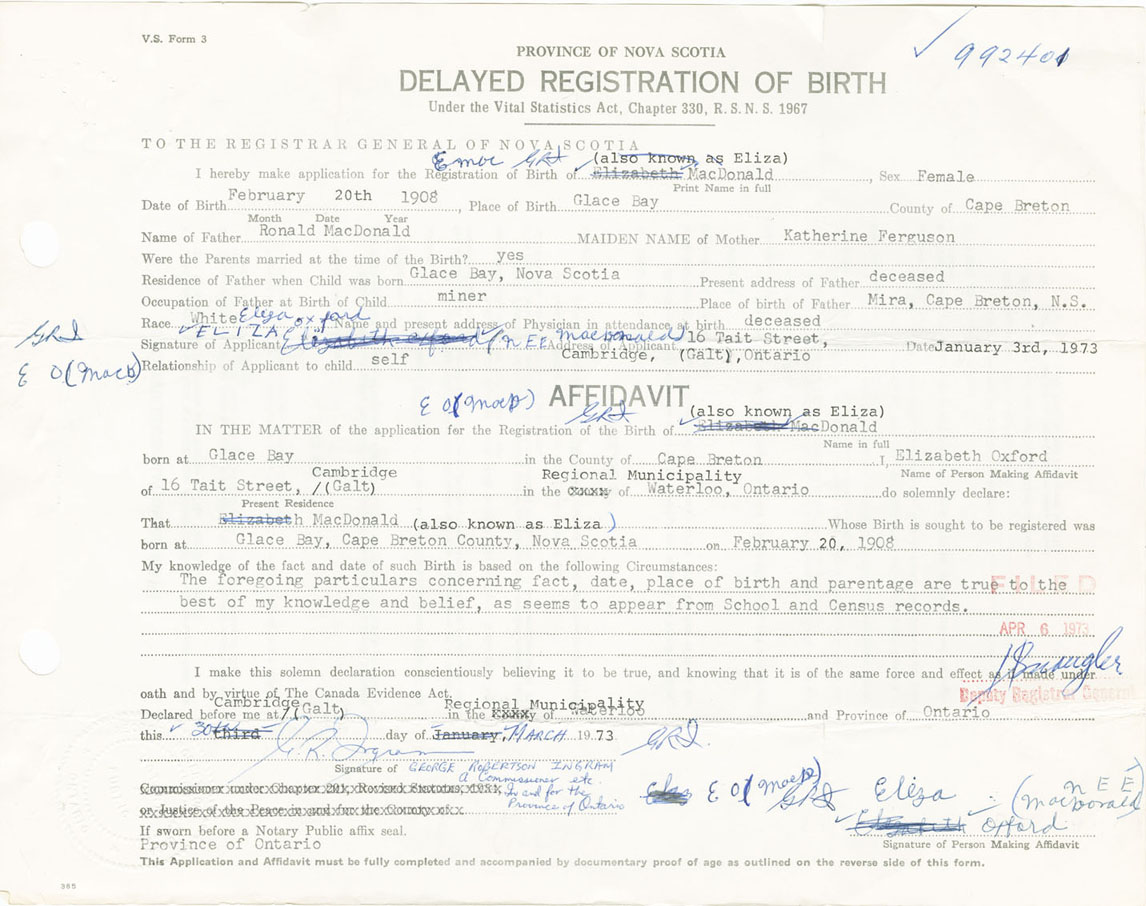 V.S. Form 3
992401
PROVINCE OF NOVA SCOTIA
DELAYED REGISTRATION OF BIRTH
Under the Vital Statistics Act, Chapter 330, R.S.N.S. 1967
TO THE REGISTRAR GENERAL OF NOVA SCOTIA
GRI (also known as Eliza)
I hereby make application for the Registration of Birth of Elizabeth MacDonald, Sex Female
Print Name in full
Date of Birth February 20th 1908, Place of Birth Glace Bay County of Cape Breton
Month Date Year
Name of Father Ronald MacDonald MAIDEN NAME of Mother Katherine Ferguson
Were the Parents married at the time of the Birth? yes
Residence of Father when Child was born Glace Bay, Nova Scotia Present address of Father deceased
Occupation of Father at Birth of Child miner Place of birth of Father Mira, Cape Breton, N.S.
Race White Name and present address of Physician in attendance at birth deceased
Eliza Oxford
GRI
ELIZA
Signature of Applicant Elizabeth Oxford (NEE MacDonald) Address of Applicant 16 Tait Street, Cambridge, (Galt), Ontario Date January 3rd, 1973
E O
Relationship of Applicant to child self
E O
AFFIDAVIT
GRI (also known as Eliza)
IN THE MATTER of the application for the Registration of the Birth of Elizabeth MacDonald
Name in full
born at Glace Bay in the County of Cape Breton I, Elizabeth Oxford
Name of Person Making Affidavit
Cambridge Regional Municipality
of 16 Tait Street, /(Galt) in the xxxx of Waterloo, Ontario do solemnly declare:
Present Residence
That Elizabeth MacDonald (also known as Eliza) Whose Birth is sought to be registered was
born at Glace Bay, Cape Breton County, Nova Scotia on February 20, 1908
My knowledge of the fact and date of such Birth is based on the following Circumstances:
The foregoing particulars concerning fact, date, place of birth and parentage are true to the
best of my knowledge and belief, as seems to appear from School and Census records.
FILED
APR 6 1973
I make this solemn declaration conscientiously believing it to be true, and knowing that it is of the same force and effect as if made under
oath and by virtue of The Canada Evidence Act.
Deputy Registrar General
Cambridge Regional Municipality
Declared before me at /(Galt) in the xxxx of Waterloo and Province of Ontario
this 30th Third day of January, MARCH 1973 GRI.
G. R. Ingram
Signature of GEORGE ROBERTSON INGRAM
A Commissioner etc.
In and for the
Province of Ontario
Commissioner under Chapter 201, Revised Statutes, 1951,
or Justice of the Peace in and for the County of
E O GRI Eliza (NEE MacDonald)
Elizabeth Oxford
Signature of Person Making Affidavit
If sworn before a Notary Public affix seal.
Province of Ontario
This Application and Affidavit must be fully completed and accompanied by documentary proof of age as outlined on the reverse side of this form.
365